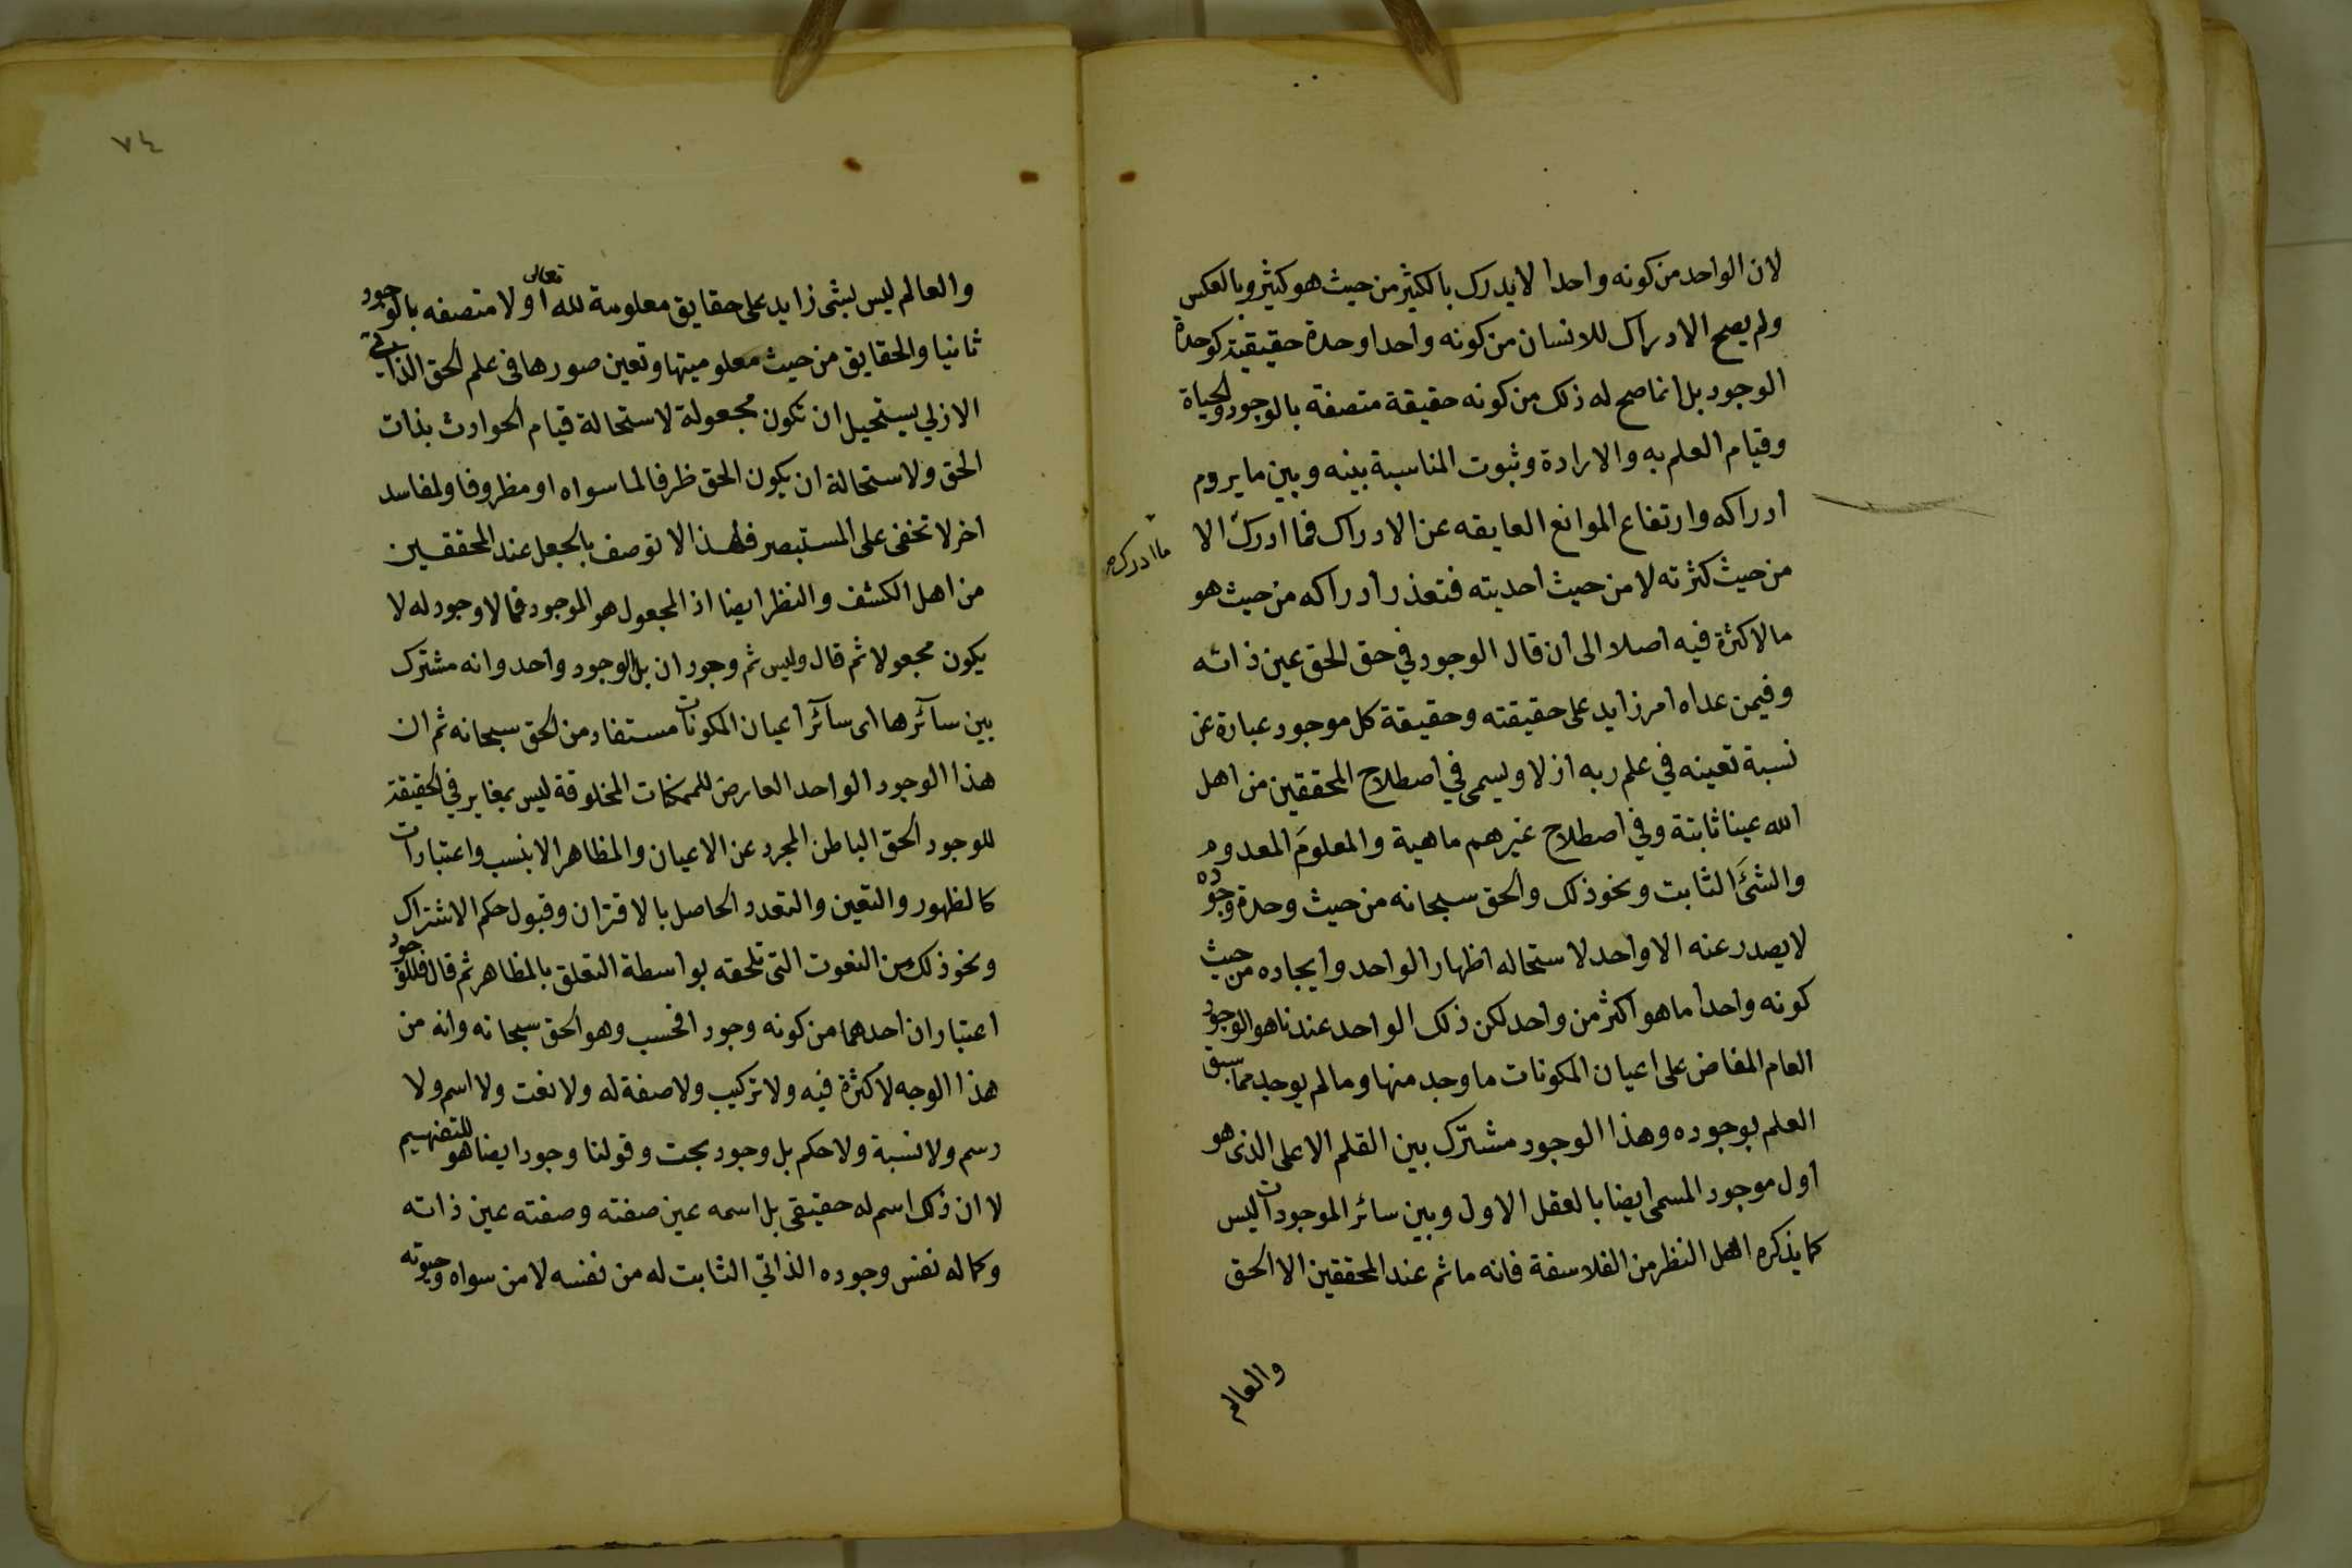 لان الواحد من كونه واحدا لا يدرك بالكثير من حيث هو كثير وبالعكس
ولم يصح الادراك للانسان من كونه واحدا وحدة حقيقية كوحدة
الوجود بل انما صح له ذلك من كونه حقيقة متصفة بالوجود والحياة
وقيام العلم به والارادة وثبوت المناسبة بينه وبين ما يروم
ادراكه وارتفاع الموانع العايقه عن الادراك فما ادرك الا
ما ادركه
من حيث كثرته لا من حيث احديته فتعذر ادراكه من حيث هو
ما لا كثرة فيه اصلا الى ان قال الوجود في حق الحق عين ذاته
وفيمن عداه امر زايد على حقيقته وحقيقة كل موجود عبارة عن
نسبة تعينه في علم ربه ازلا ويسمى في اصطلاح المحققين من اهل
الله عينا ثابتة وفي اصطلاح غيرهم ماهية والمعلوم المعدوم
والشئ الثابت ونحو ذلك والحق سبحانه من حيث وحدة وجوده
لا يصدر عنه الا واحد لاستحاله اظهار الواحد وايجاده من حيث
كونه واحدا ما هو اكثر من واحد لكن ذلك الواحد عندنا هو الوجود
العام المفاض على اعيان المكونات ما وجد منها وما لم يوجد مما سبق
العلم بوجوده وهذا الوجود مشترك بين القلم الاعلى الذى هو
اول موجود المسمى ايضا بالعقل الاول وبين سائر الموجودات ليس
كما يذكره اهل النظر من الفلاسفة فانه ما ثم عند المحققين الا الحق
والعالم
٧٤
والعالم ليس بشئ زايد على حقايق معلومة لله تعالى اولا متصفه بالوجود
ثانيا والحقايق من حيث معلوميتها وتعين صورها في علم الحق الذاتي
الازلي يستحيل ان تكون مجعولة لاستحالة قيام الحوادث بذات
الحق ولاستحالة ان يكون الحق ظرفا لما سواه او مظروفا ولمفاسد
اخر لا تخفى على المستبصر فلهذا لا توصف بالجعل عند المحققين
من اهل الكشف والنظر ايضا اذ المجعول هو الموجود فما لا وجود له لا
يكون مجعولا ثم قال وليس ثم وجودان بل الوجود واحد وانه مشترك
بين سآئرها اى سآئر اعيان المكونات مستفاد من الحق سبحانه ثم ان
هذا الوجود الواحد العارض للممكنات المخلوقة ليس بمغاير في الحقيقة
للوجود الحق الباطن المجرد عن الاعيان والمظاهر الا بنسب واعتبارات
كالظهور والتعين والتعدد الحاصل بالاقتران وقبول حكم الاشتراك
ونحو ذلك من النعوت التى تلحقه بواسطة التعلق بالمظاهر ثم قال فللوجود
اعتباران احدهما من كونه وجودا فحسب وهو الحق سبحانه وانه من
هذا الوجه لا كثرة فيه ولا تركيب ولا صفة له ولا نعت ولا اسم ولا
رسم ولا نسبة ولا حكم بل وجود بحت وقولنا وجود ايضا هو للتفهيم
لا ان ذلك اسم له حقيقى بل اسمه عين صفته وصفته عين ذاته
وكماله نفس وجوده الذاتي الثابت له من نفسه لا من سواه وحيوته